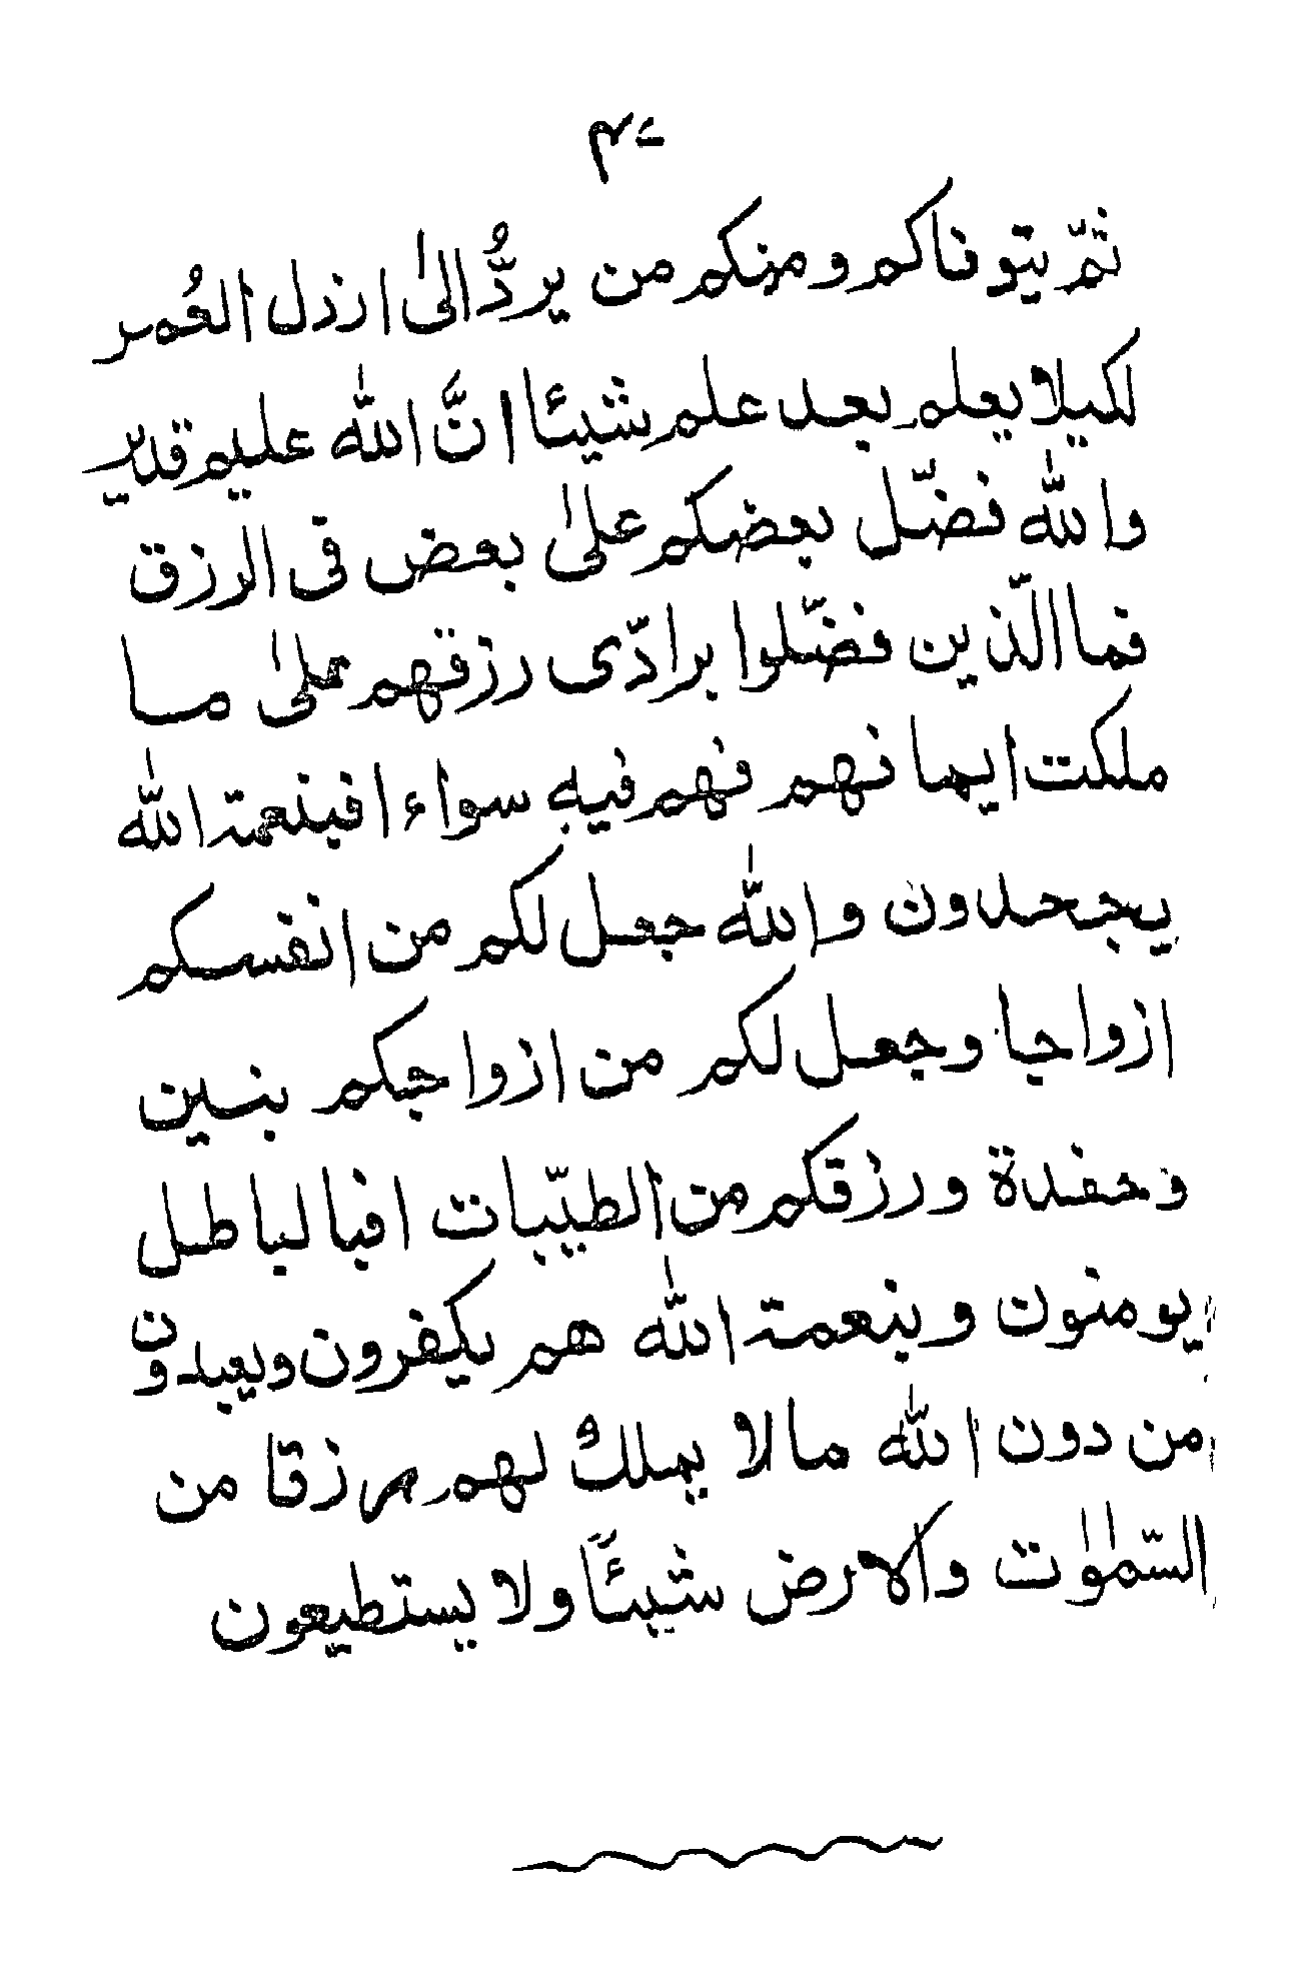 ثمّ يتوفاكم ومنكم من يردُّ الىٰ ارذل العُمر
لكيلا يعلم بعد علم شيئا انَّ اللّٰه عليم قدير
واللّٰه فضّل بعضكم علىٰ بعض فى الرزق
فما الّذين فضّلوا برادّى رزقهم علىٰ ما
ملكت ايما نهم فهم فيه سواء افبنعمة اللّٰه
يجحدون واللّٰه جعل لكم من انفسكم
ازواجا وجعل لكم من ازواجكم بنين
وحفدة ورزقكم من الطيّبات افبالباطل
يومنون وبنعمة اللّٰه هم يكفرون ويعبدون
من دون اللّٰه مالا يملكُ لهم رزقا من
السّمٰوٰت والارض شيئًا ولا يستطيعون